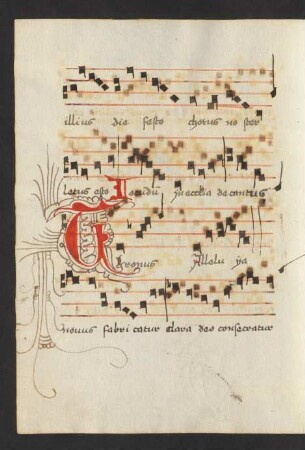 illius die festo chorus noster
letus asto Iocundu ecclesia decantus
Thronus Alleluya
novus fabricatur clara deo consecratur